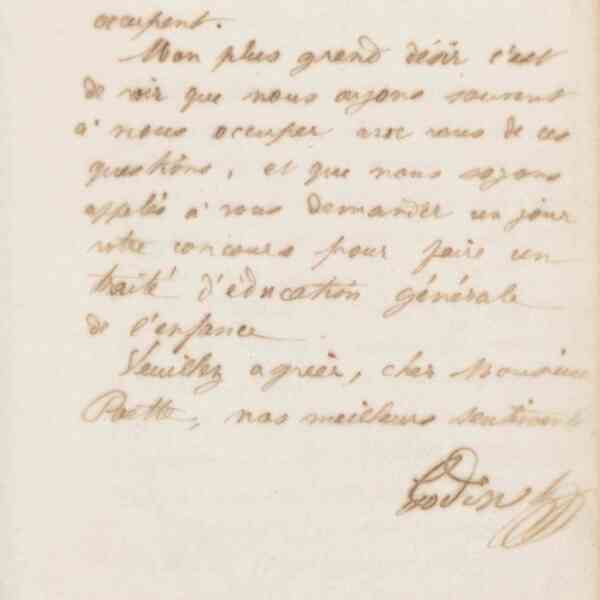 occupent.
Mon plus grand désir c'est
de voir que nous ayons souvent
à nous occuper avec vous de ces
questions, et que nous soyons
appelés à vous demander un jour
votre concours pour faire un
traité d'éducation générale
de l'enfance
Veuillez agréer, cher Monsieur
nos meilleurs sentiments
Godin